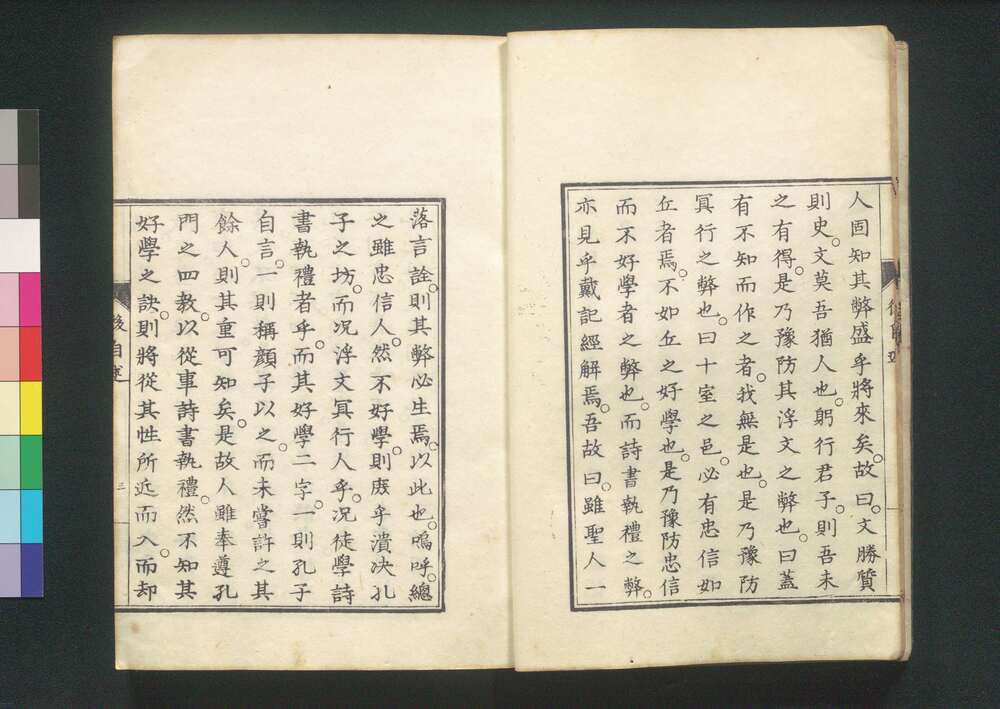 人固知其弊盛乎將來矣。故曰。文勝質
則史。文莫吾猶人也。躬行君子。則吾未
之有得。是乃豫防其浮文之弊也。曰蓋
有不知而作之者。我無是也。是乃豫防
冥行之弊也。曰十室之邑。必有忠信如
丘者焉。不如丘之好學也。是乃豫防忠信
而不好學者之弊也。而詩書執禮之弊。
亦見乎戴記經解焉。吾故曰。雖聖人一
落言詮。則其弊必生焉。以此也。嗚呼。總
之雖忠信人。然不好學。則庶乎潰决孔
子之坊。而况浮文冥行人乎。况徒學詩
書執禮者乎。而其好學二字。一則孔子
自言。一則稱顔子以之。而未嘗許之其
餘人。則其重可知矣。是故人雖奉遵孔
門之四教。以從事詩書執禮。然不知其
好學之訣。則將從其性所近而入。而却
後自述
三